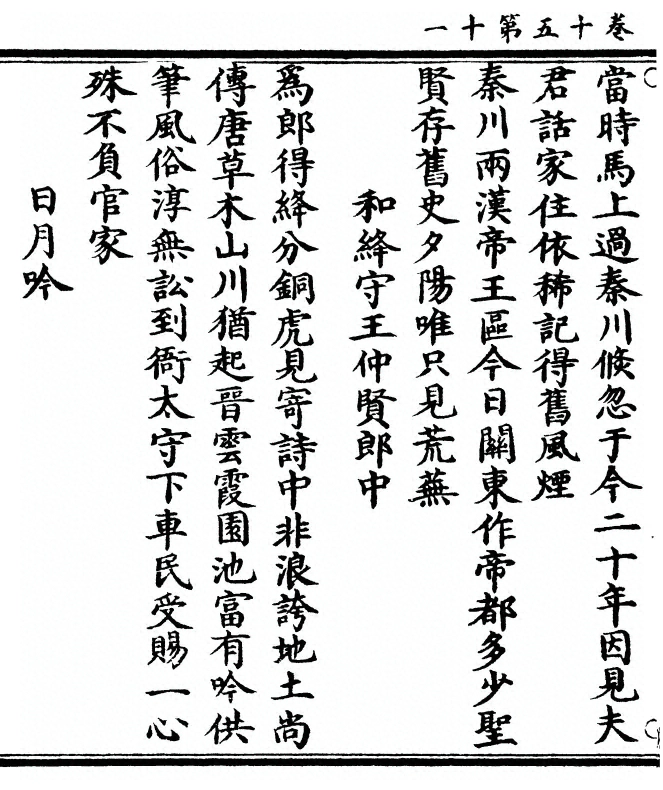 卷十五第十一
當時馬上過秦川倐忽于今二十年因見夫
君話家住依稀記得舊風煙
秦川兩漢帝王區今日關東作帝都多少聖
賢存舊史夕陽唯只見荒蕪
和絳守王仲賢郎中
爲郎得絳分銅虎見寄詩中非浪誇地土尚
傳唐草木山川猶起晉雲霞園池富有吟供
筆風俗淳無訟到衙太守下車民受賜一心
殊不負官家
日月吟